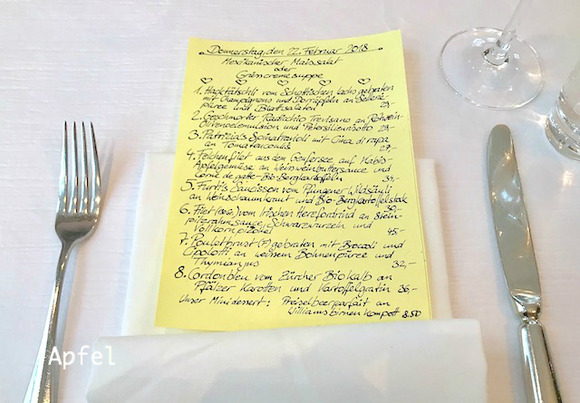 Donnerstag, den 22. Februar 2018
Mexikanischer Maissalat
oder
Grüncremesuppe
1. Hacktätschli vom Schottischen Lachs gebraten
mit Champignons und Dörräpfeln an Sellerie-
püree mit Blattsalaten 29,-
2. Geschmorter Radicchio Trevisano an Rotwein-
Olivenölemulsion und Petersilienrisotto 29,-
3. Patrizia's Spinatravioli mit Cima di rapa
an Tomatencoulis 29,-
4. Felchenfilet aus dem Genfersee auf Kabis-
Apfelgemüse an Weissweinbuttersauce und
Corne de gatte-Bio-Bergkartoffeln
5. Furti's Saucisson vom Pfungener Wildsäuli
an Weinschaumkraut und Bio-Bergkartoffelstock
6. Filet vom Irischen Hereford rind an Stein-
pilzrahmsauce, Schwarzwurzeln und
Vollkornpizokel 45,-
7. Pouletbrust (F) gebraten mit Broccoli und
Cipolotti an weissem Bohnenpüree und
Thymianjus 32,-
8. Cordonbleu vom Zürcher Biokalb an
Pfälzer Karotten und Kartoffelgratin 36,-
Unser Minidessert: Preiselbeerparfait an
Williamsbirnen Kompott 8.50
Apfel